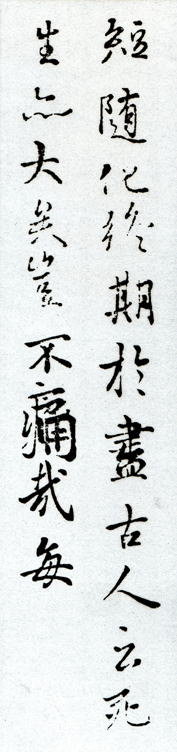 短隨化終期於盡古人云死
生亦大矣豈不痛哉每